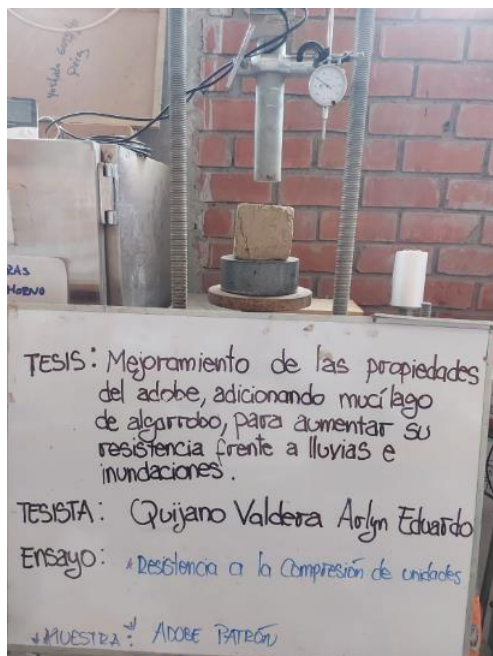 RAS
HORNO
TESIS: Mejoramiento de las propiedades
del adobe, adicionando mucílago
de algarrobo, para aumentar su
resistencia frente a lluvias e
inundaciones.
TESISTA: Quijano Valdera Arlyn Eduardo
Ensayo: *Resistencia a la Compresión de unidades
*MUESTRA: ADOBE PATRÓN